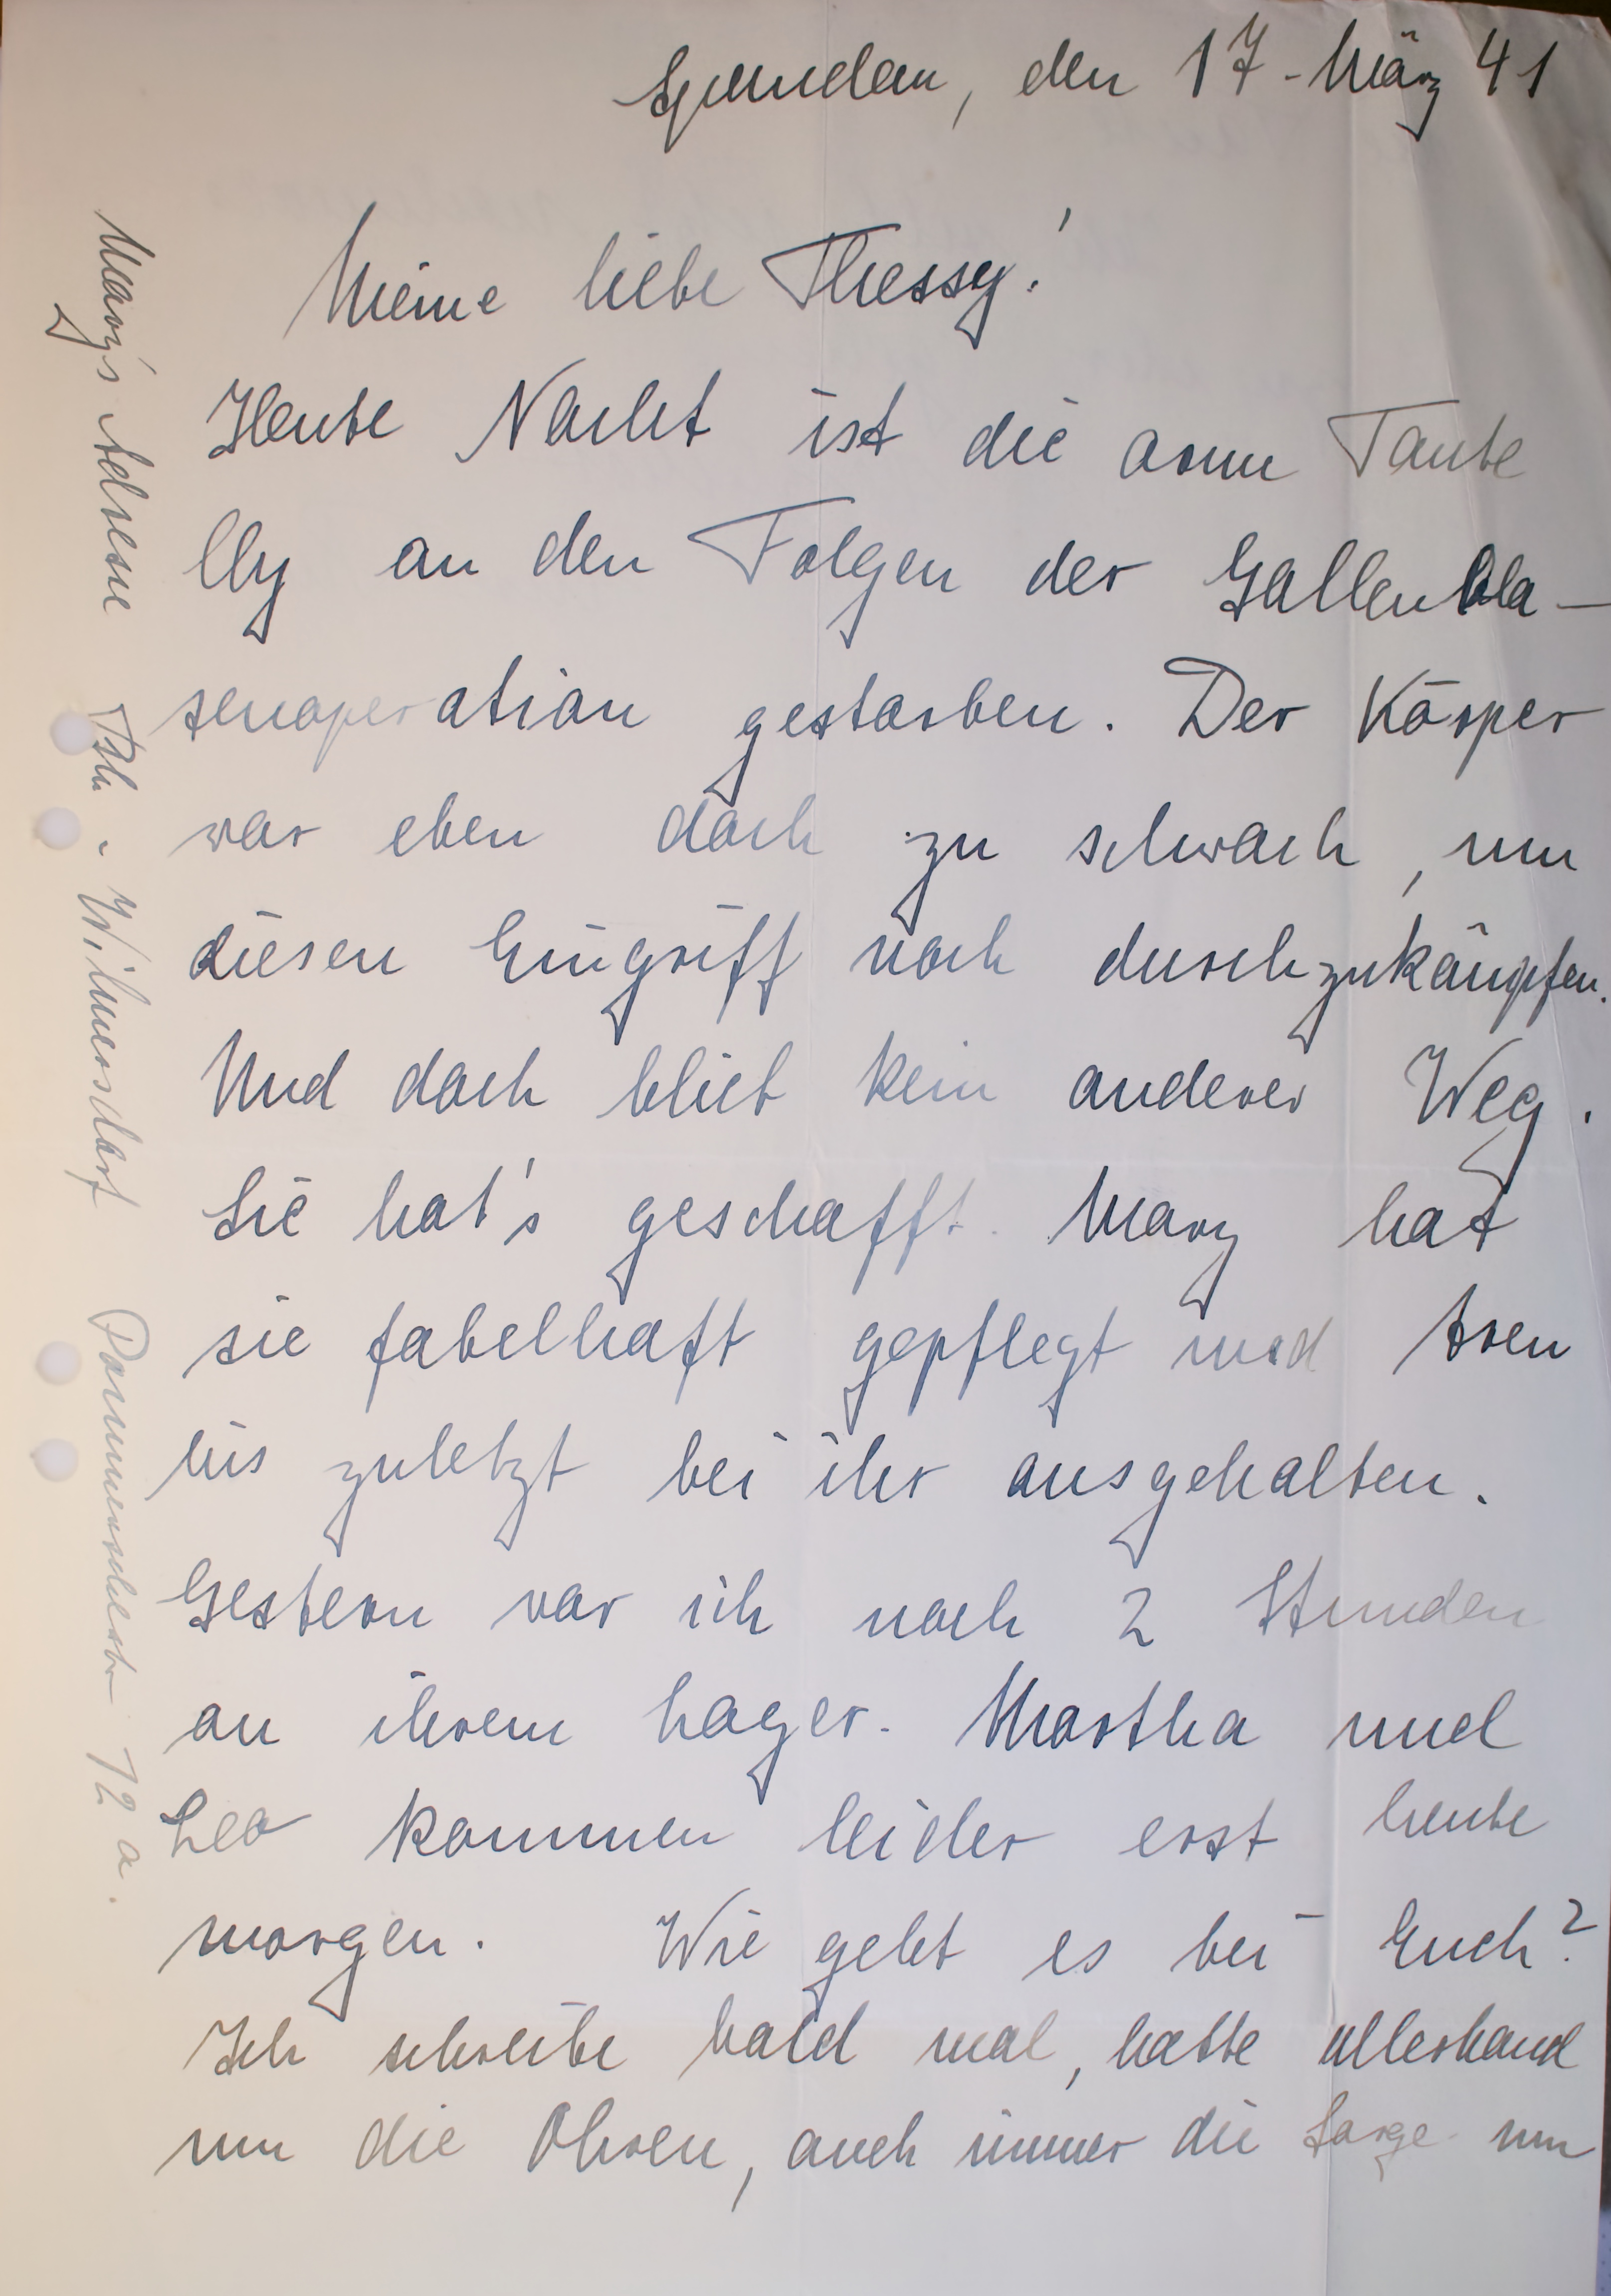 Spandau, den 17. März 41
Meine liebe Thessy!
Heute Nacht ist die arme Tante
Elly an den Folgen der Gallenbla-
senoperation gestorben. Der Körper
war eben doch zu schwach, um
diesen Eingriff noch durchzukämpfen.
Und doch blieb kein anderer Weg.
Sie hat's geschafft. Mary hat
sie fabelhaft gepflegt und treu
bis zuletzt bei ihr ausgehalten.
Gestern war ich noch 2 Stunden
an ihrem Lager. Martha und
Leo kommen leider erst heute
morgen. Wie geht es bei Euch?
Ich schreibe bald mal, hatte allerhand
um die Ohren, auch immer die Sorge um
Mary's Adresse Bln - Wilmersdorf 12 a.